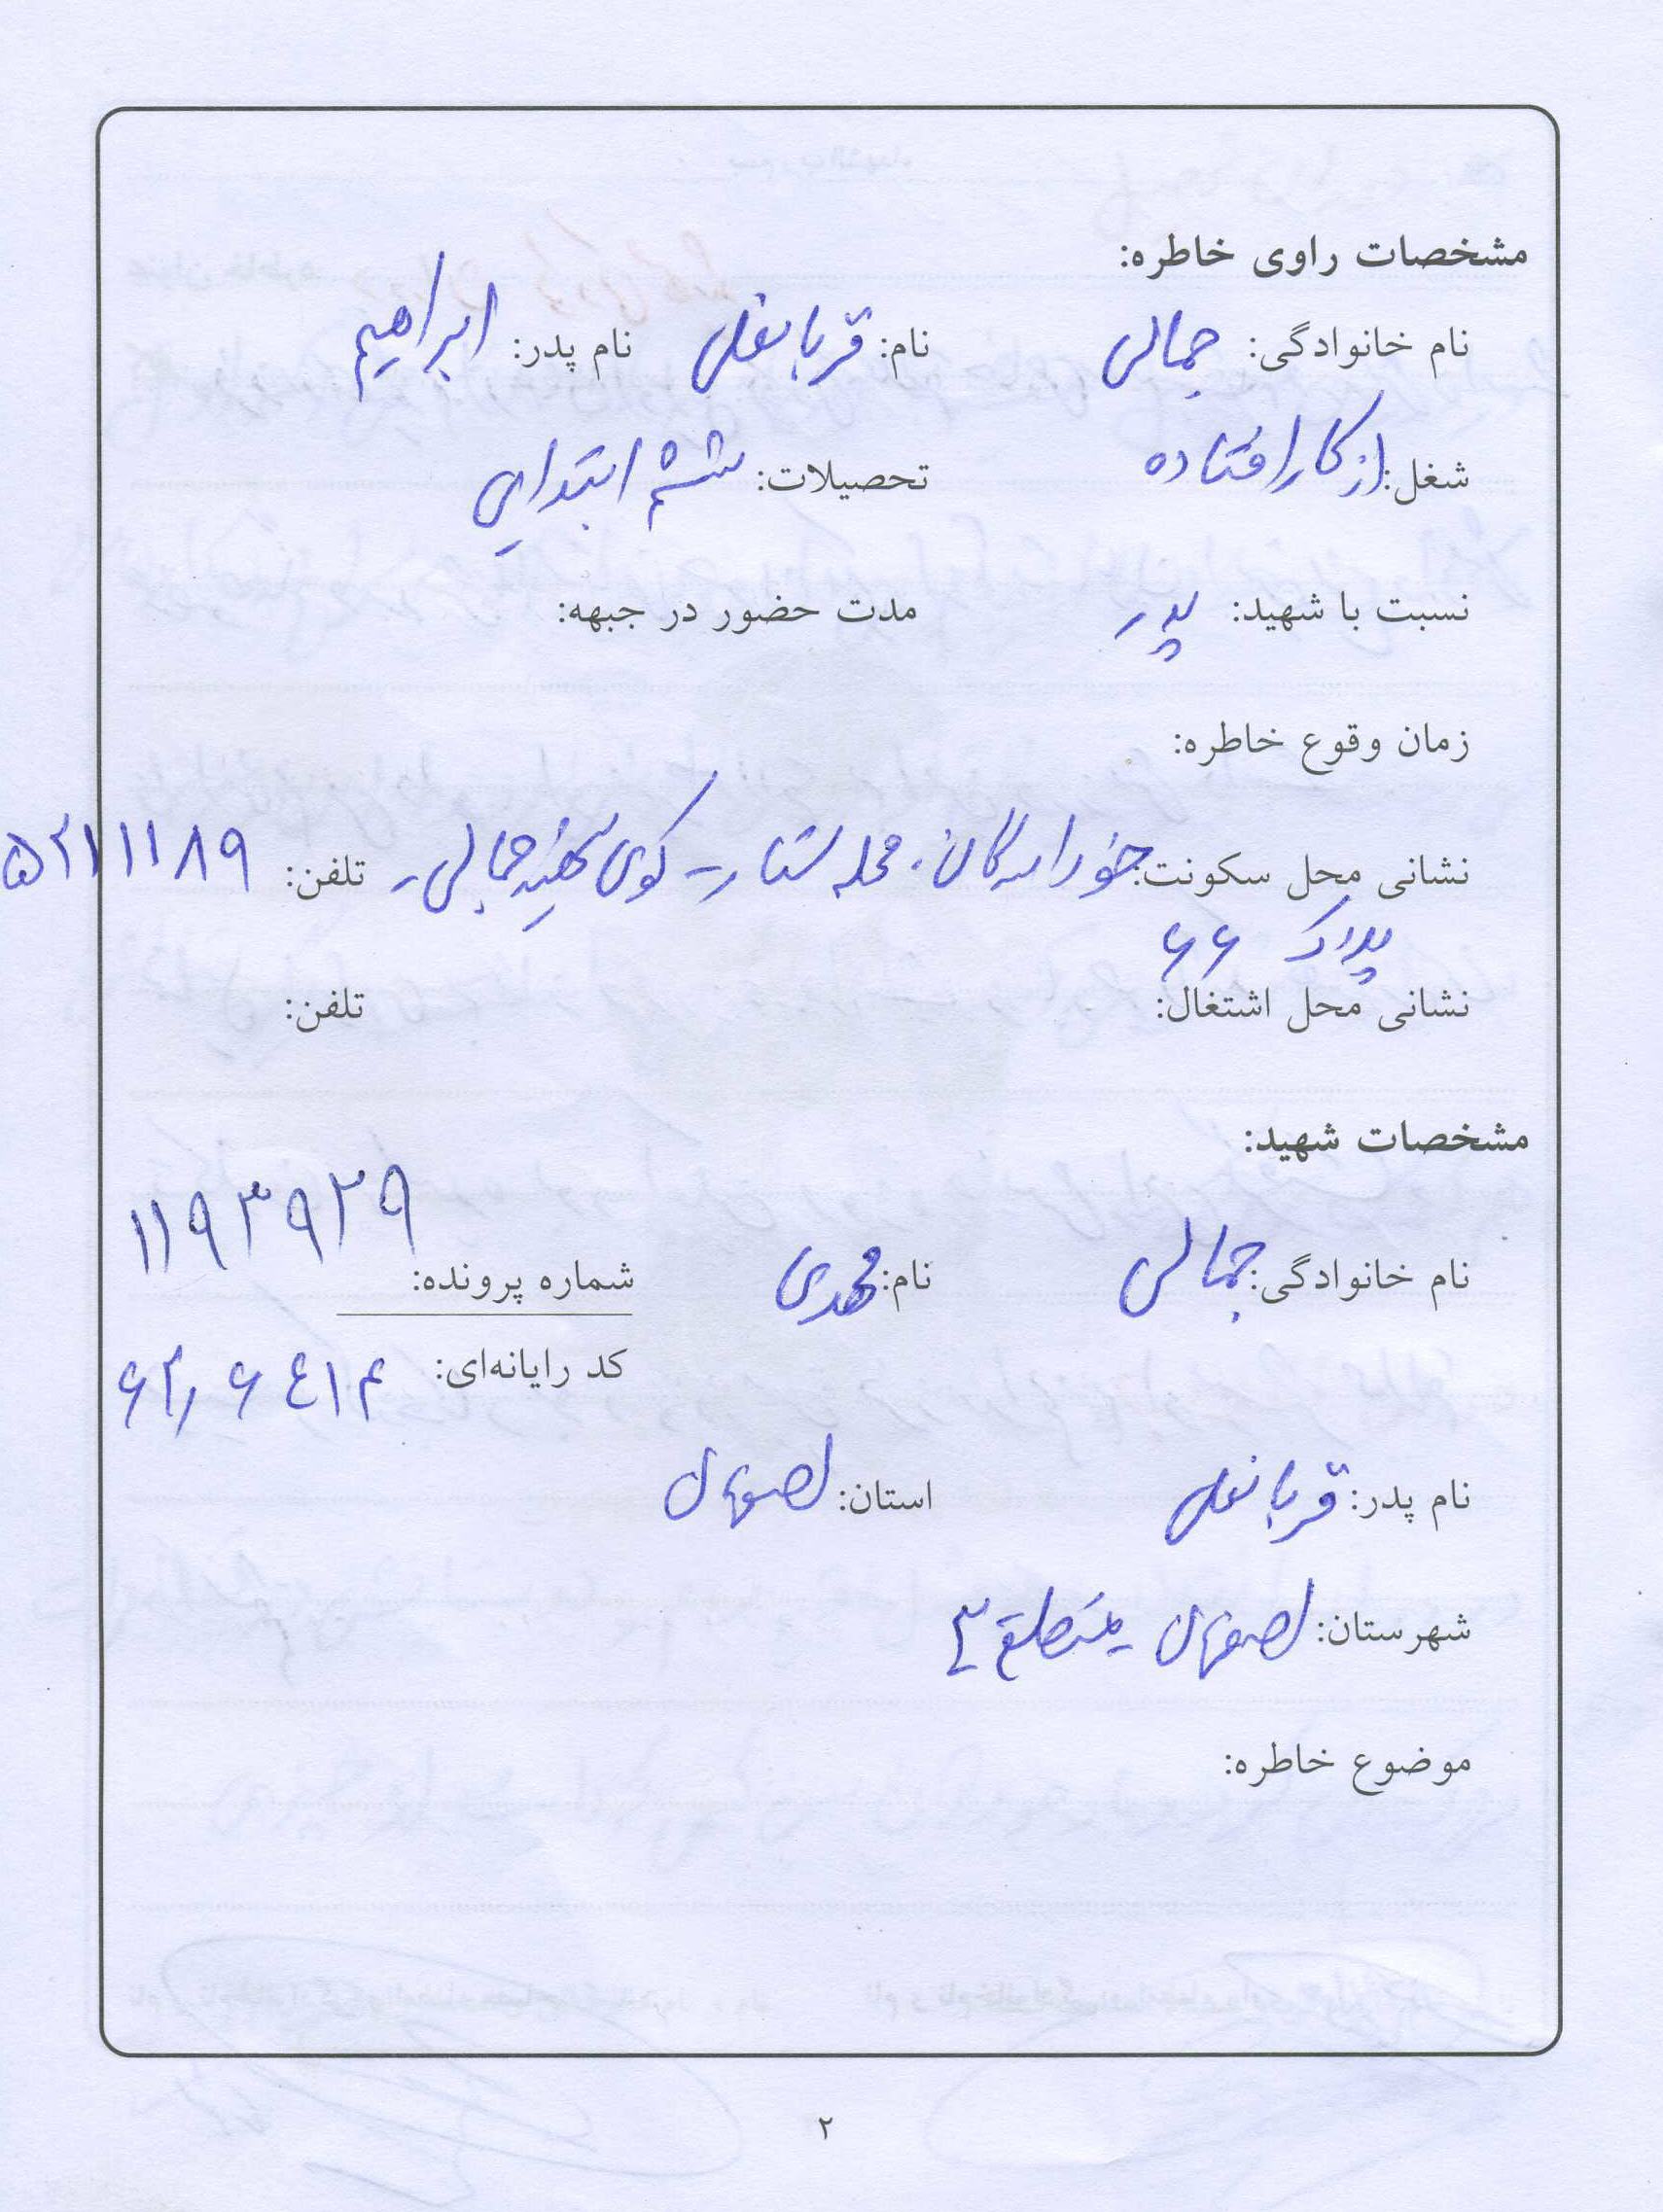 مشخصات راوی خاطره:
نام خانوادگی: جمالی نام: قربانعلی نام پدر: ابراهیم
شغل: از کار افتاده تحصیلات: ششم ابتدایی
نسبت با شهید: پدر مدت حضور در جبهه:
زمان وقوع خاطره:
نشانی محل سکونت: خوراسگان. محله - کوی شهید جمالی - تلفن: ۵۲۱۱۱۸۹
پلاک ۶۶
نشانی محل اشتغال: تلفن:
مشخصات شهید:
نام خانوادگی: جمالی نام: مهدی شماره پرونده: ۱۱۹۳۹۲۹
کد رایانه‌ای:
نام پدر: قربانعلی استان: اصفهان
شهرستان: اصفهان - منطقه ۳
موضوع خاطره:
۲